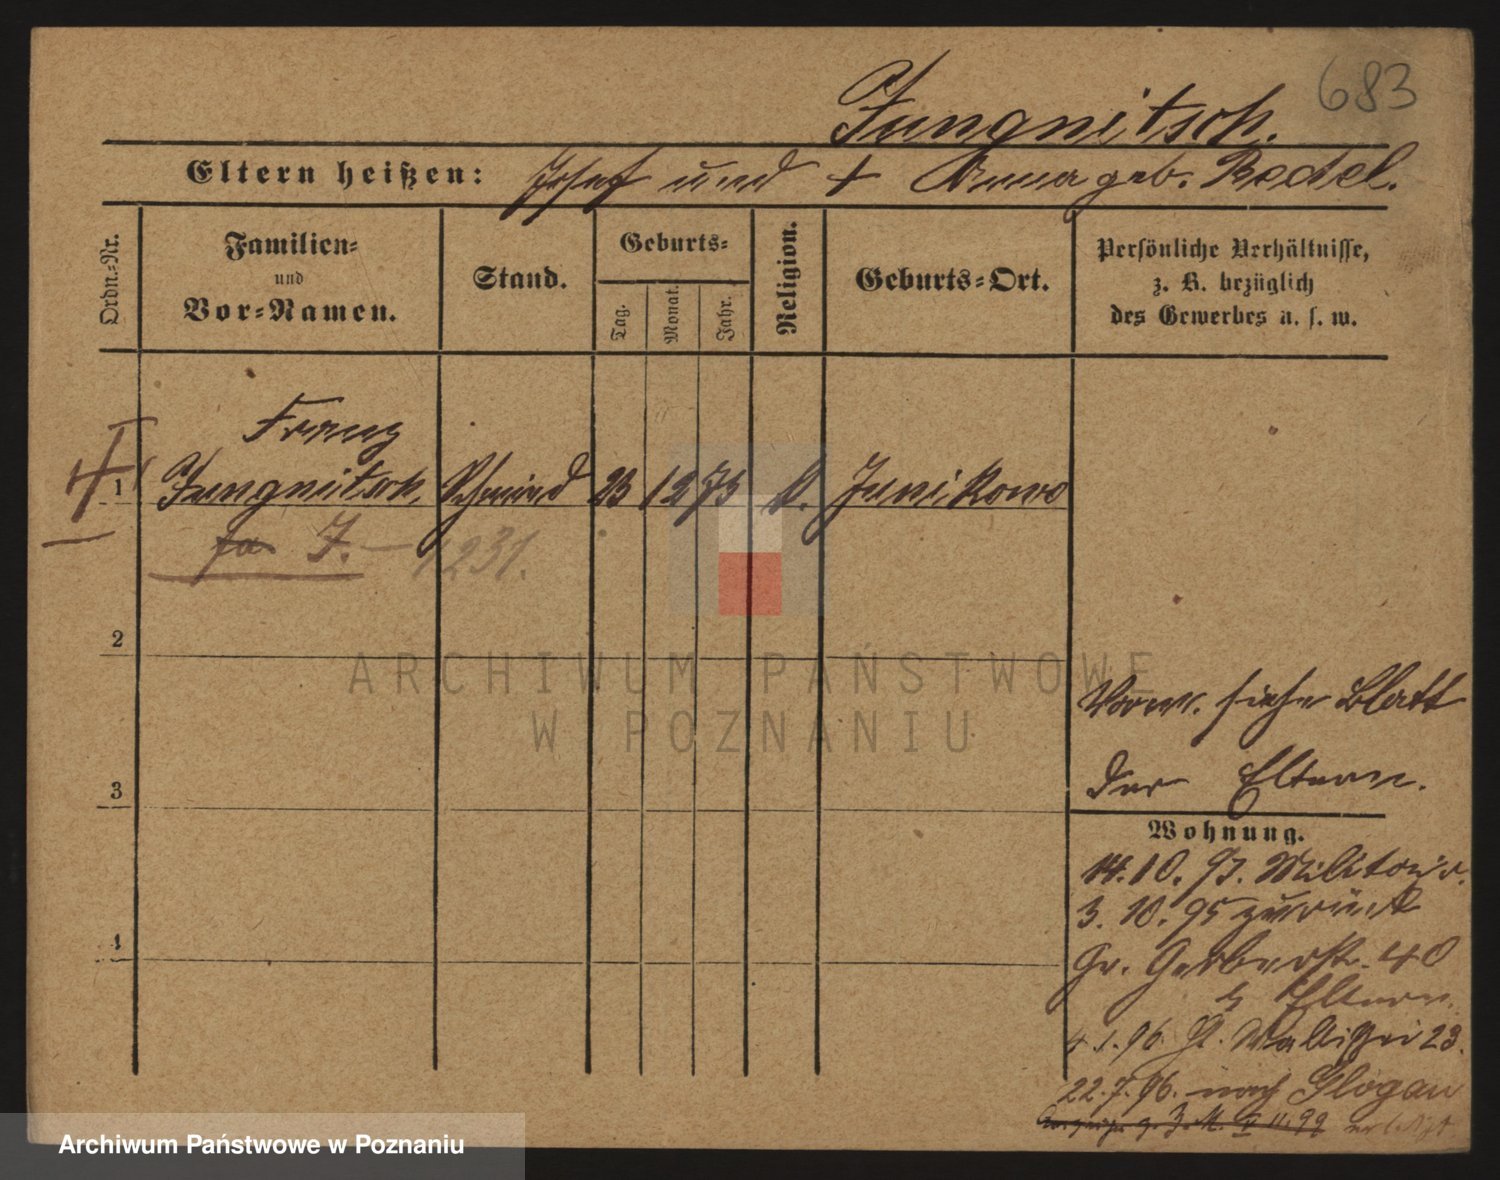 683
Jungnitsch.
Eltern heißen: Josef und + Anna geb. Bedel.
Ordn.=Nr.
Familien=
und
Vor=Namen.
Stand.
Geburts=
Tag.
Monat.
Jahr.
Religion.
Geburts=Ort.
Persönliche Verhältnisse,
z. B. bezüglich
des Gewerbes u. s. w.
Franz
1 Jungnitsch. Schmied 23 12 73 k. Junikowo
J. — 1231.
2
3
4
Vorw. siehe Blatt
der Eltern.
Wohnung.
14.10.93. Militair.
3.10.95 zurück
Gr. Gerberstr. 40
b Eltern.
4.1.96 St. Wallischei 23.
22.7.96. nach Glogau
ARCHIWUM PAŃSTWOWE
W POZNANIU
Archiwum Państwowe w Poznaniu